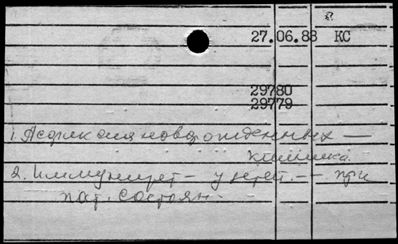 27.06.88 КС
29780
29779
1. Асфиксия новорожденных —
клиника.
2. Иммунитет — у детей. — при
пат. состоян.